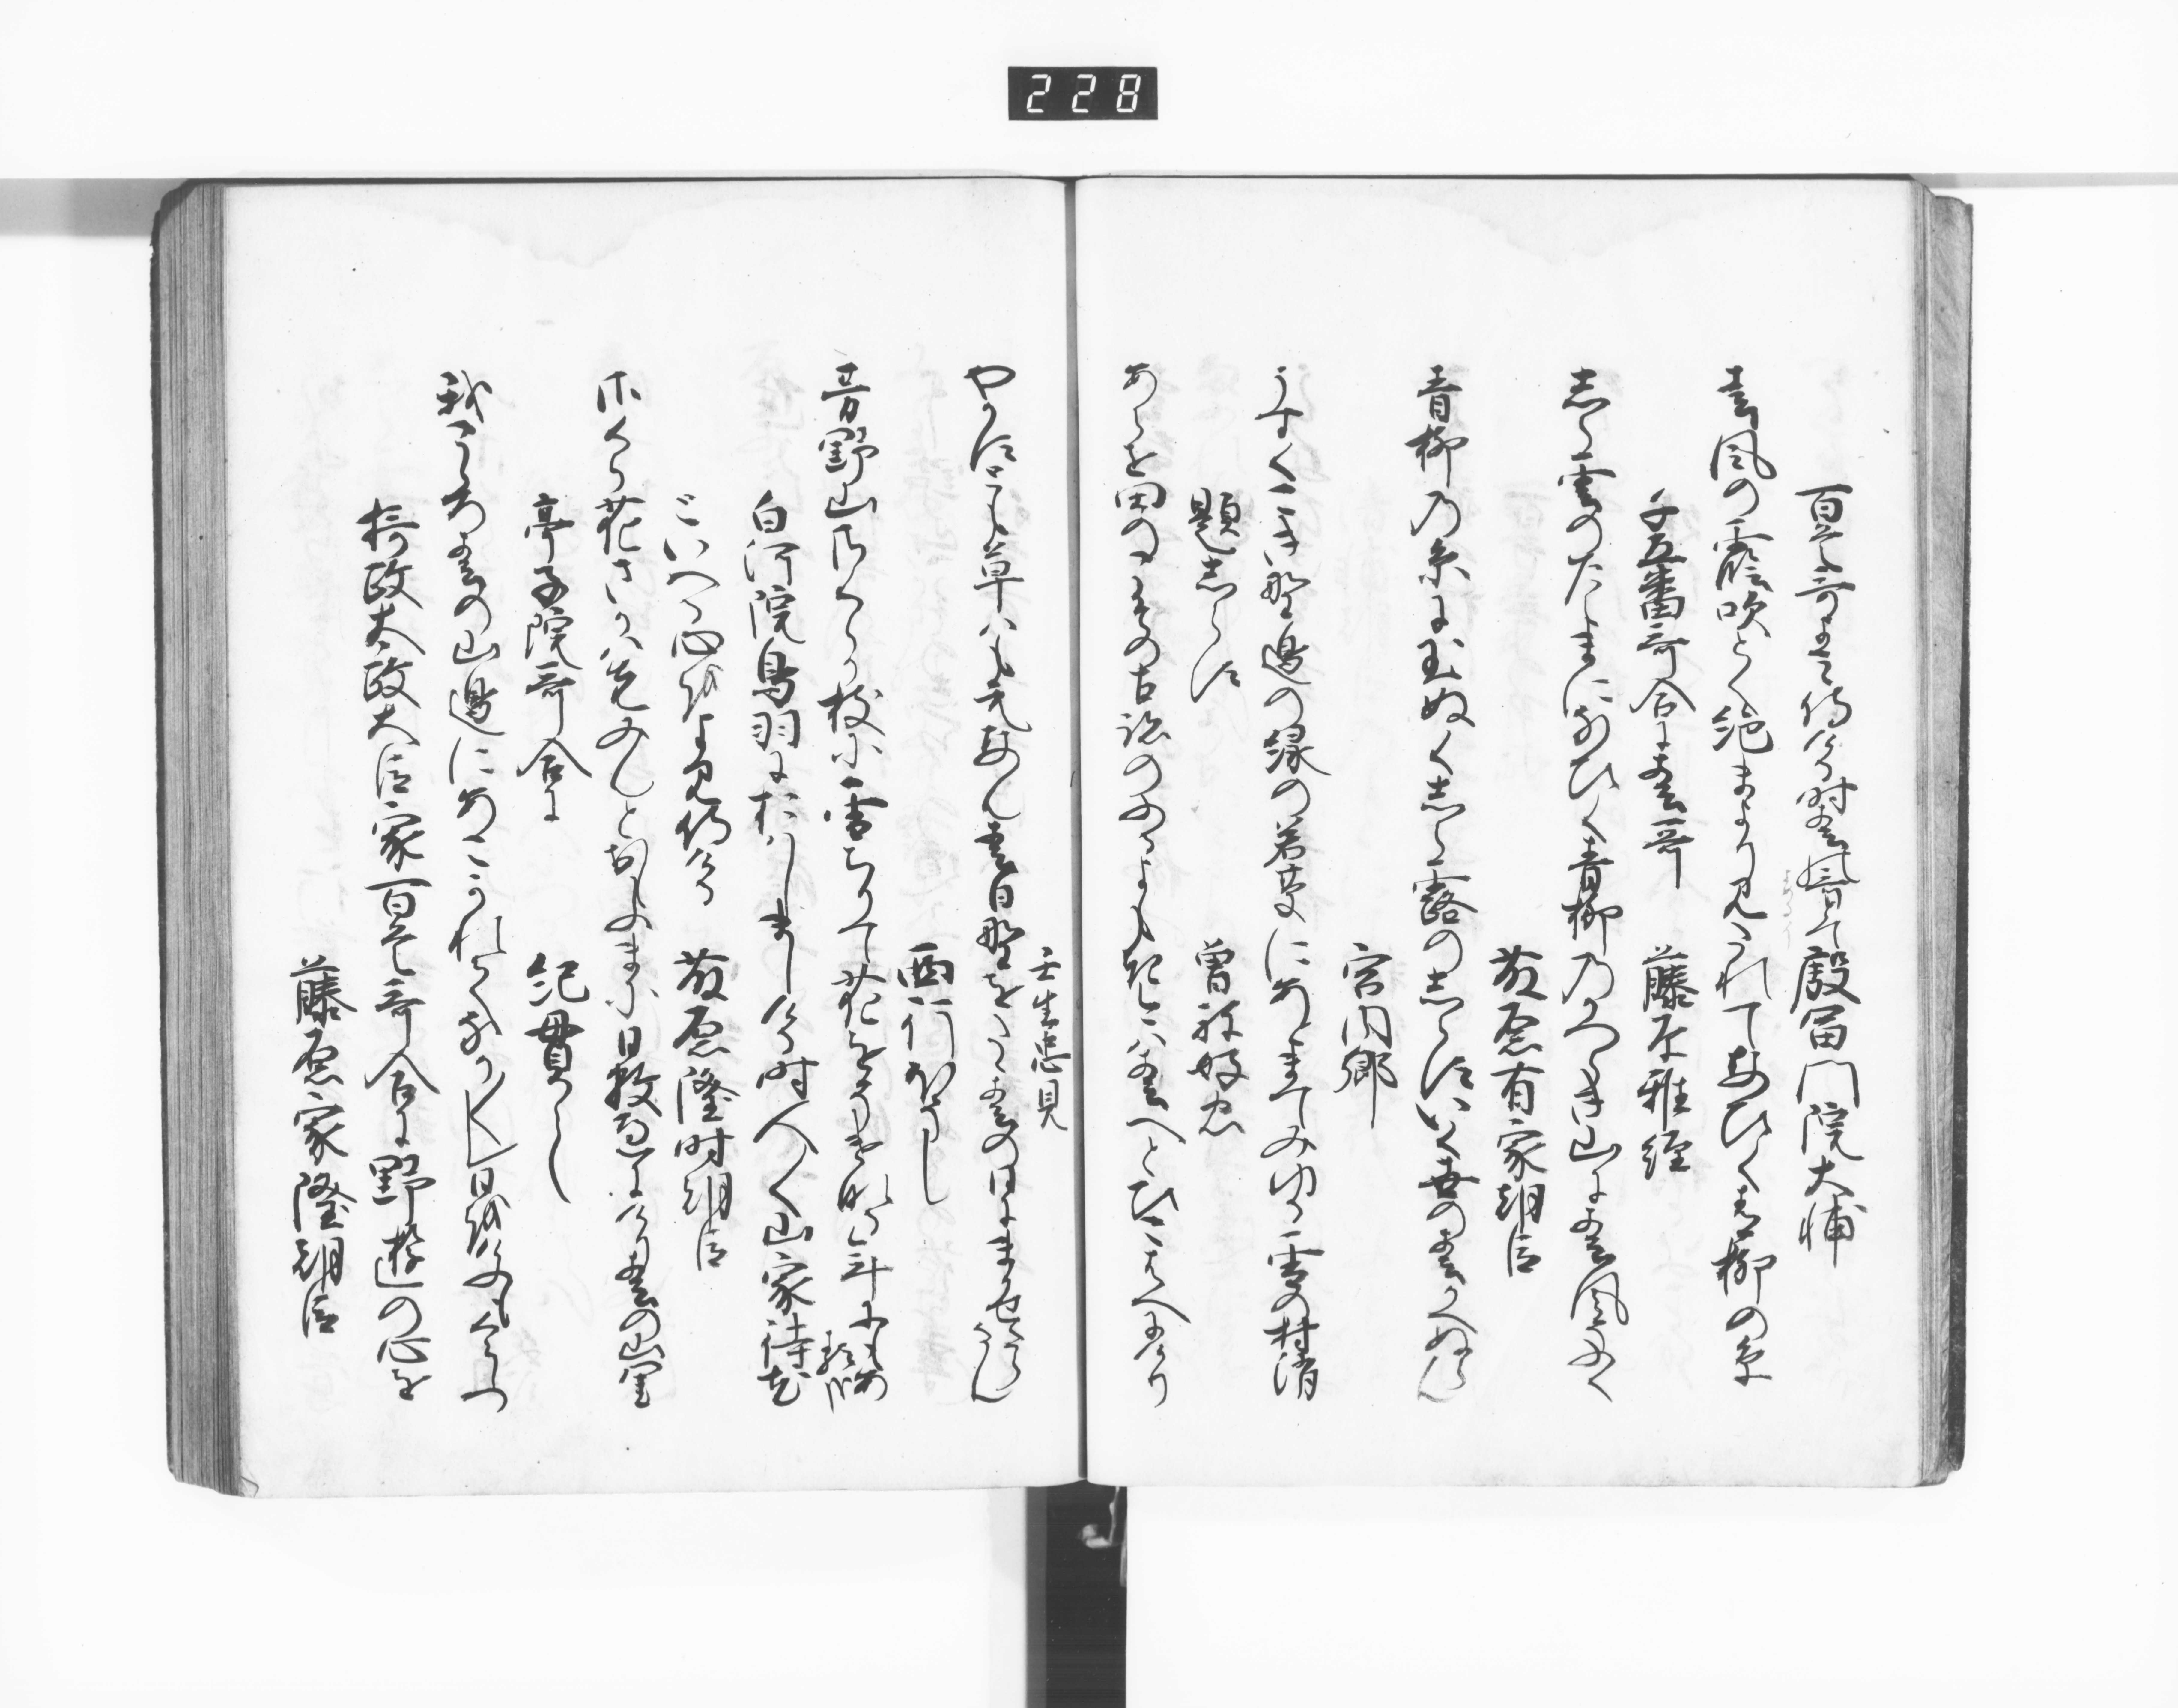 228
百首哥よみ侍ける時春哥とて 殷冨門院大輔
春風の霞吹とく絶まより見たれてなひく青柳の糸
千五百番哥合に春哥 藤原雅経
しら雲のたえまになひく青柳のかつらき山に春風そふく
藤原有家朝臣
青柳の糸に玉ぬくしら露のしらすいく世の春かへぬらん
宮内卿
うすくこき野邉の緑の若草にあとまてみゆる雪の村消
題しらす 曽祢好忠
あらを田のこその古跡のふるよもき今は春へとひこはへにけり
壬生忠見
やかすとも草はもえなん春日野をたゝ春のひにまかせたらなん
西行法し
芳野山さくらか枝に雪ちりて花をそけなる年にもある哉
白河院鳥羽におはしましける時人〱山家待花
といへる心をよみ侍ける 藤原隆時朝臣
さくら花さかはまつみんとおもふまに日数へにけり春の山里
亭子院哥合に 紀貫之
我こゝろ春の山邉にあこかれてなか〱し日をけふもくらしつ
摂政太政大臣家百首哥合に野遊の心を
藤原家隆朝臣